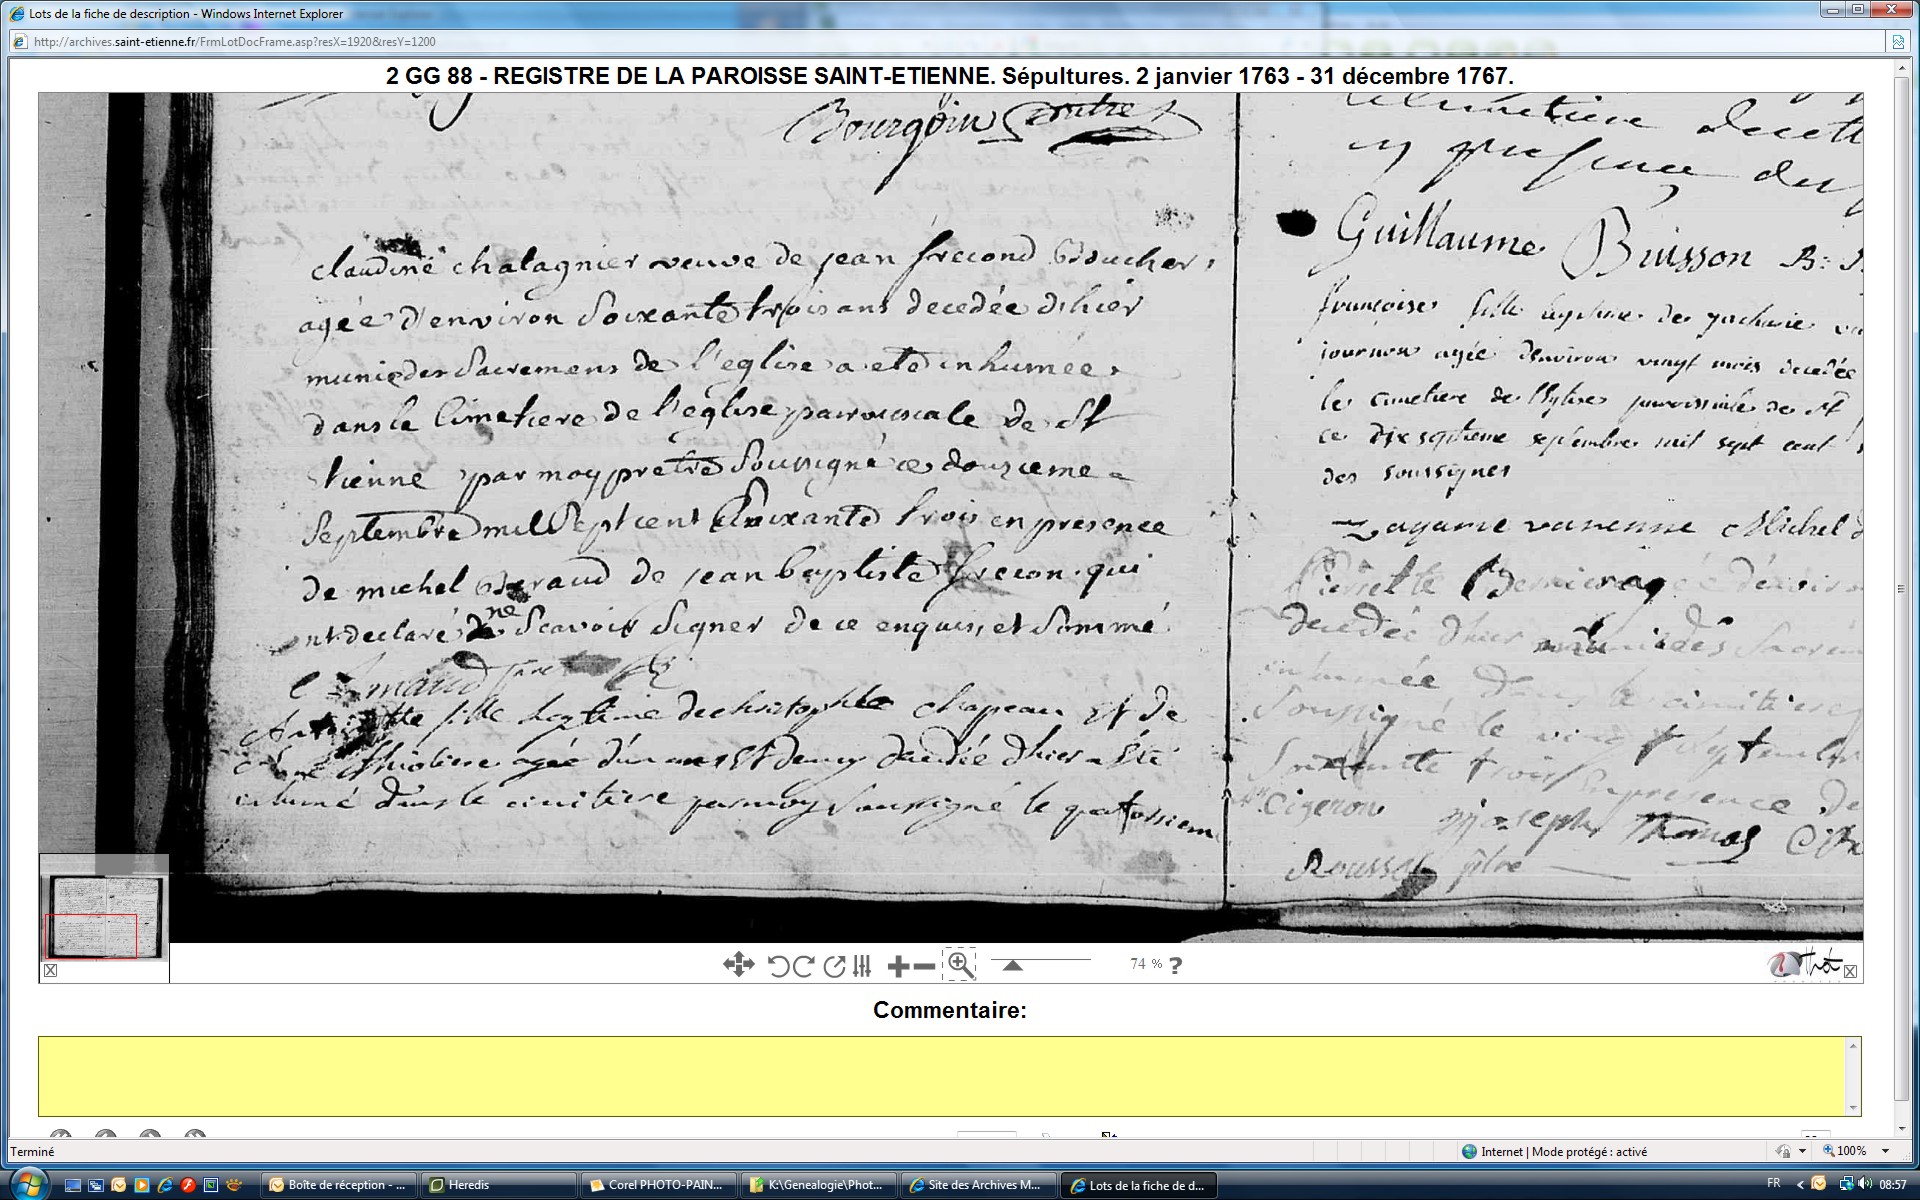 Lots de la fiche de description - Windows Internet Explorer
http://archives.saint-etienne.fr/FrmLotDocFrame.asp?resX=1920&resY=1200
2 GG 88 - REGISTRE DE LA PAROISSE SAINT-ETIENNE. Sépultures. 2 janvier 1763 - 31 décembre 1767.
Bourgoin
claudine chatagnier veuve de jean frecond Boucher
agée d'environ Soixante trois ans decedée d'hier
munie des Sacremens de l'eglise a eté inhumée
dans le Cimetiere de l'eglise parroissiale de St
tienne par moy pretre Soussigné ce douzieme
Septembre mil Sept cent Soixante trois en presence
de michel Beraud de jean baptiste frecon qui
ont declaré ne Scavoir Signer de ce enquis et Sommé
fille legitime de christophle chapeau et de
Thioliere agée d'un an et demy decedée d'hier a été
inhumé dans le cimitiere par moy soussigné le quatorsiem
cimetiere
en presence des
Guillaume Buisson
françoise fille legitime de zacharie
journou agée denviron vingt mois decedée
le cimetiere de l'Eglise parroissiale de St
ce dix septieme septembre mil sept cent
des soussignes
zagarie varenne Michel
Pierrette Bernicrag
decedée d'hier munie des Sacrem
inhumée dans le cimitiere
Soussigné le vingt septembre
Soixante trois en presence de
Cizeron joseph Thomas
Rousset ptre
74 % ?
Commentaire:
Terminé
Internet | Mode protégé : activé
100%
Boîte de réception - ...
Heredis
Corel PHOTO-PAIN...
K:\Genealogie\Phot...
Site des Archives M...
Lots de la fiche de d...
FR
08:57